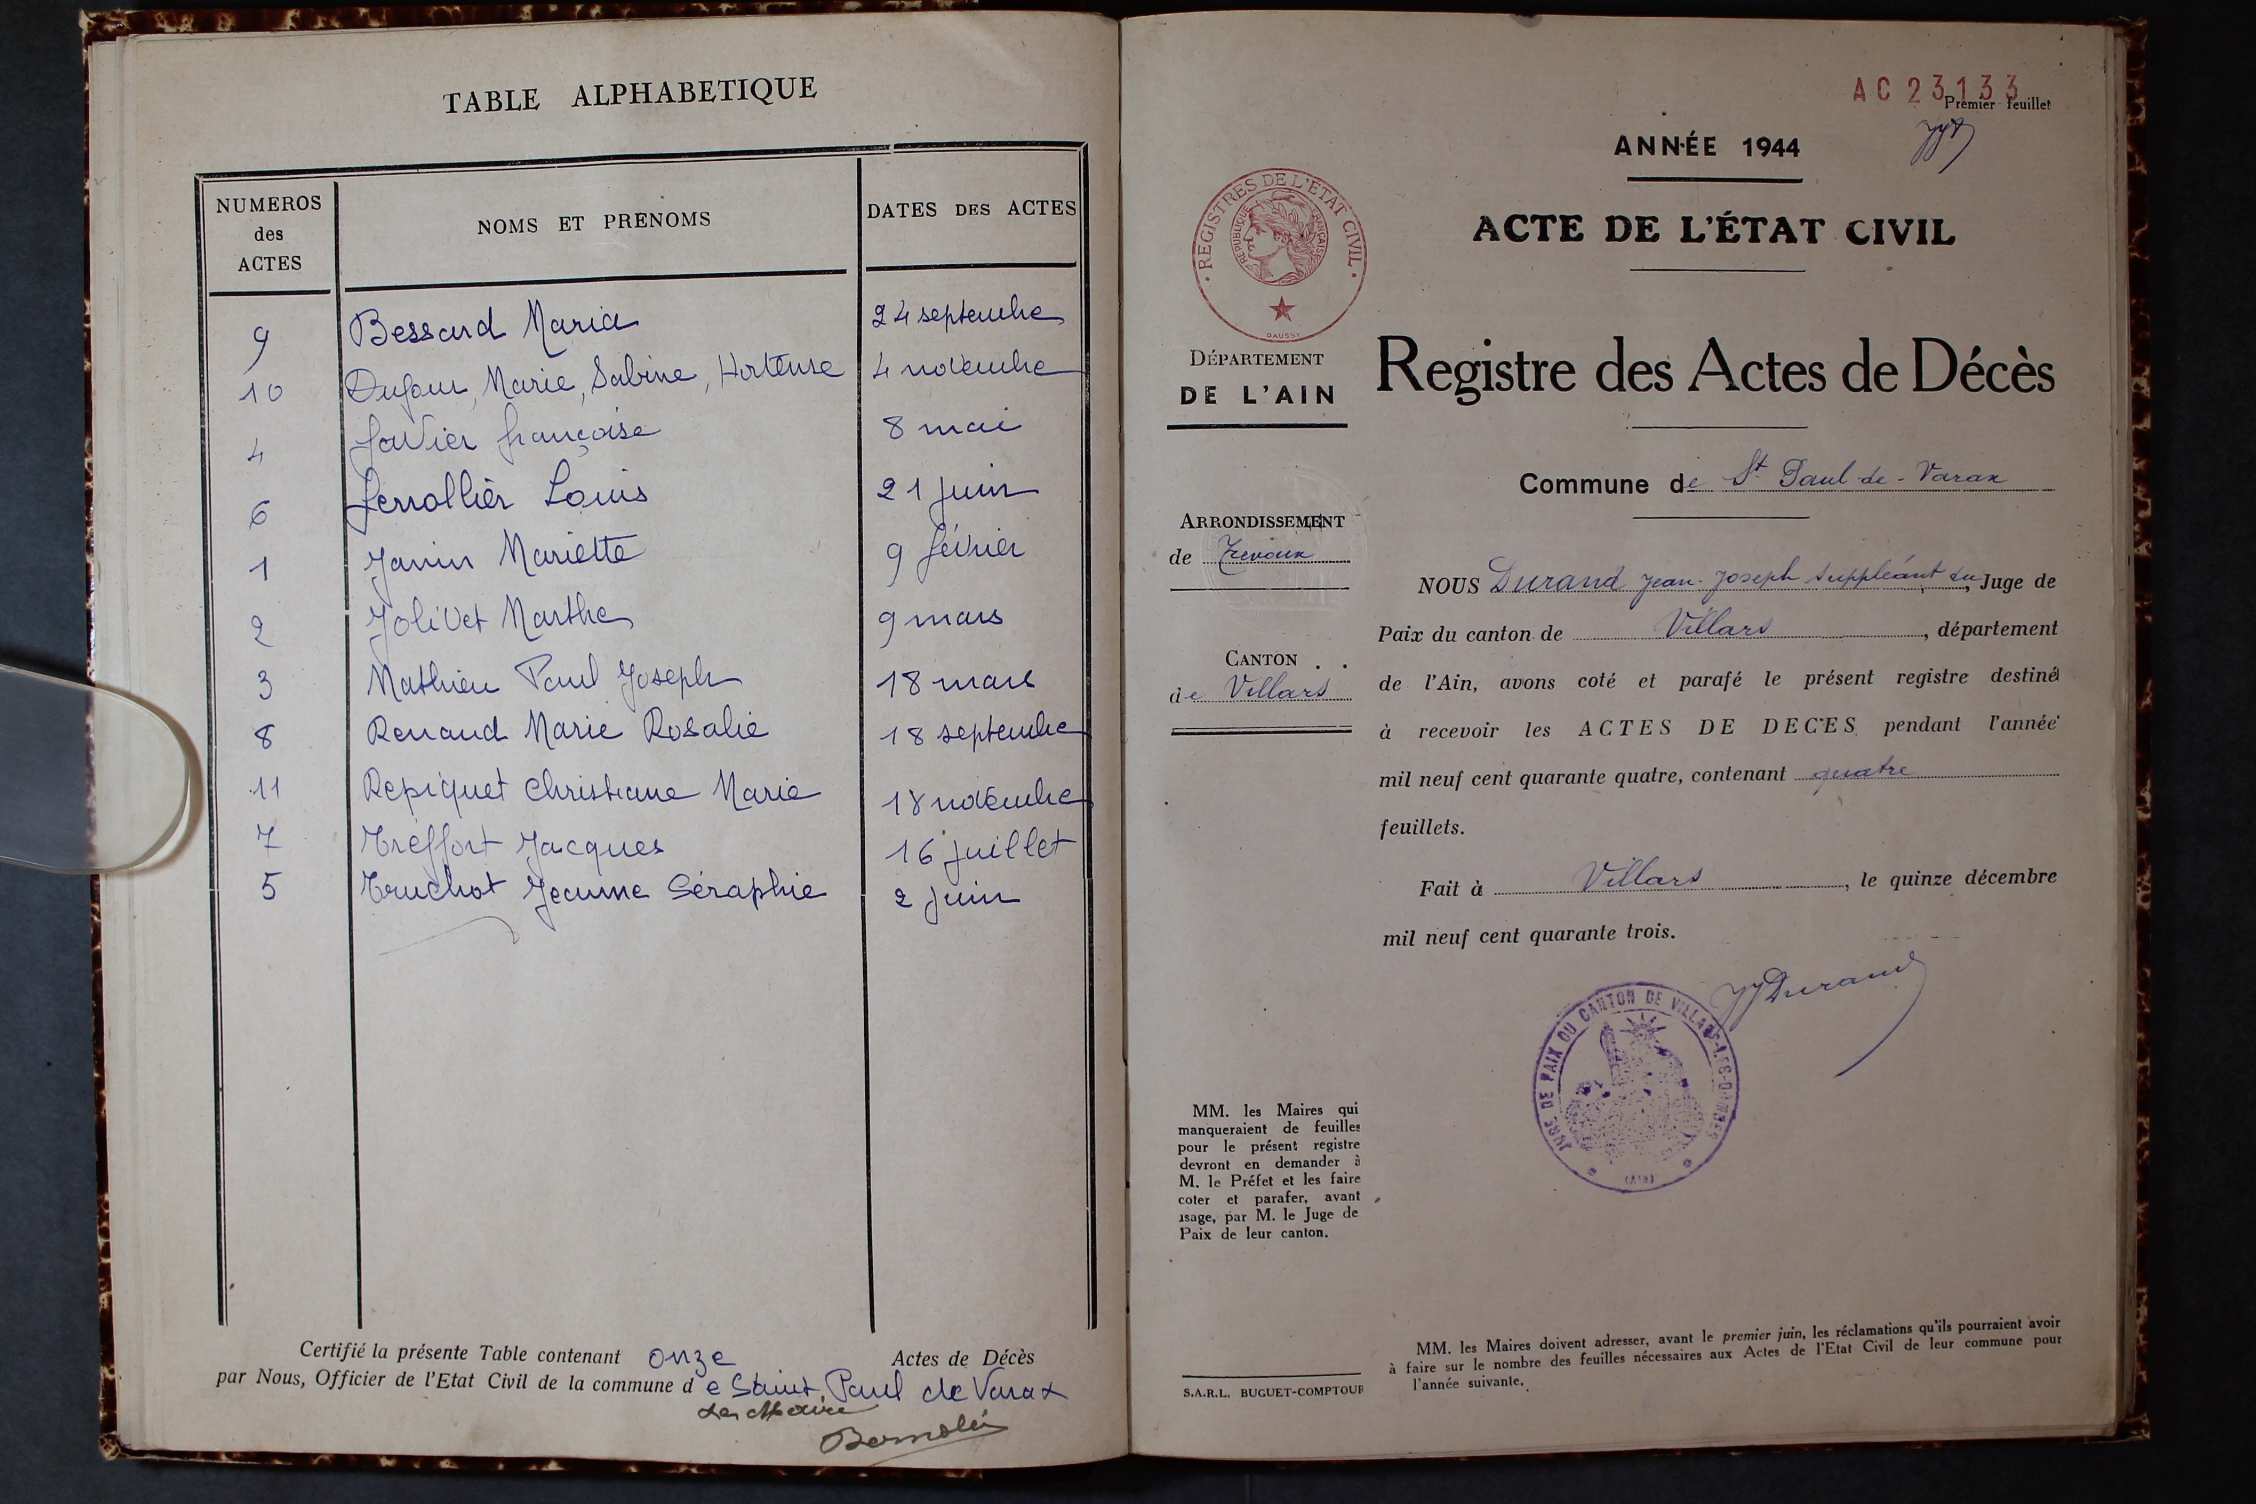 TABLE ALPHABETIQUE
NUMEROS
des
ACTES
NOMS ET PRENOMS
DATES DES ACTES
9 Bessard Maria 24 septembre
10 Dufour, Marie, Sabine, Hortense 4 novembre
4 favier françoise 8 mai
6 ferrollier Louis 21 juin
1 Janin Mariette 9 février
2 Jolivet Marthe 9 mars
3 Mathieu Paul Joseph 18 mars
8 Renaud Marie Rosalie 18 septembre
11 Repiquet Christiane Marie 18 novembre
7 Tréffort Jacques 16 juillet
5 Truchot Jeanne Séraphie 2 juin
Certifié la présente Table contenant onze Actes de Décès
par Nous, Officier de l'Etat Civil de la commune de Saint Paul de Varax
Le Maire
AC 23133
Premier feuillet
ANNÉE 1944
ACTE DE L'ÉTAT CIVIL
REGISTRES DE L'ETAT CIVIL
REPUBLIQUE FRANÇAISE
DAUSSY
DÉPARTEMENT
DE L'AIN
Registre des Actes de Décès
Commune de St Paul-de-Varax
ARRONDISSEMENT
de Trevoux
CANTON
de Villars
NOUS Durand Jean-Joseph suppléant du, Juge de
Paix du canton de Villars, département
de l'Ain, avons coté et parafé le présent registre destiné
à recevoir les ACTES DE DECES pendant l'année
mil neuf cent quarante quatre, contenant quatre
feuillets.
Fait à Villars, le quinze décembre
mil neuf cent quarante trois.
JJDurand
JUGE DE PAIX DU CANTON DE VILLARS-LES-DOMBES
(AIN)
MM. les Maires qui
manqueraient de feuilles
pour le présent registre
devront en demander à
M. le Préfet et les faire
coter et parafer, avant
usage, par M. le Juge de
Paix de leur canton.
S.A.R.L. BUGUET-COMPTOUR
MM. les Maires doivent adresser, avant le premier juin, les réclamations qu'ils pourraient avoir
à faire sur le nombre des feuilles nécessaires aux Actes de l'Etat Civil de leur commune pour
l'année suivante.